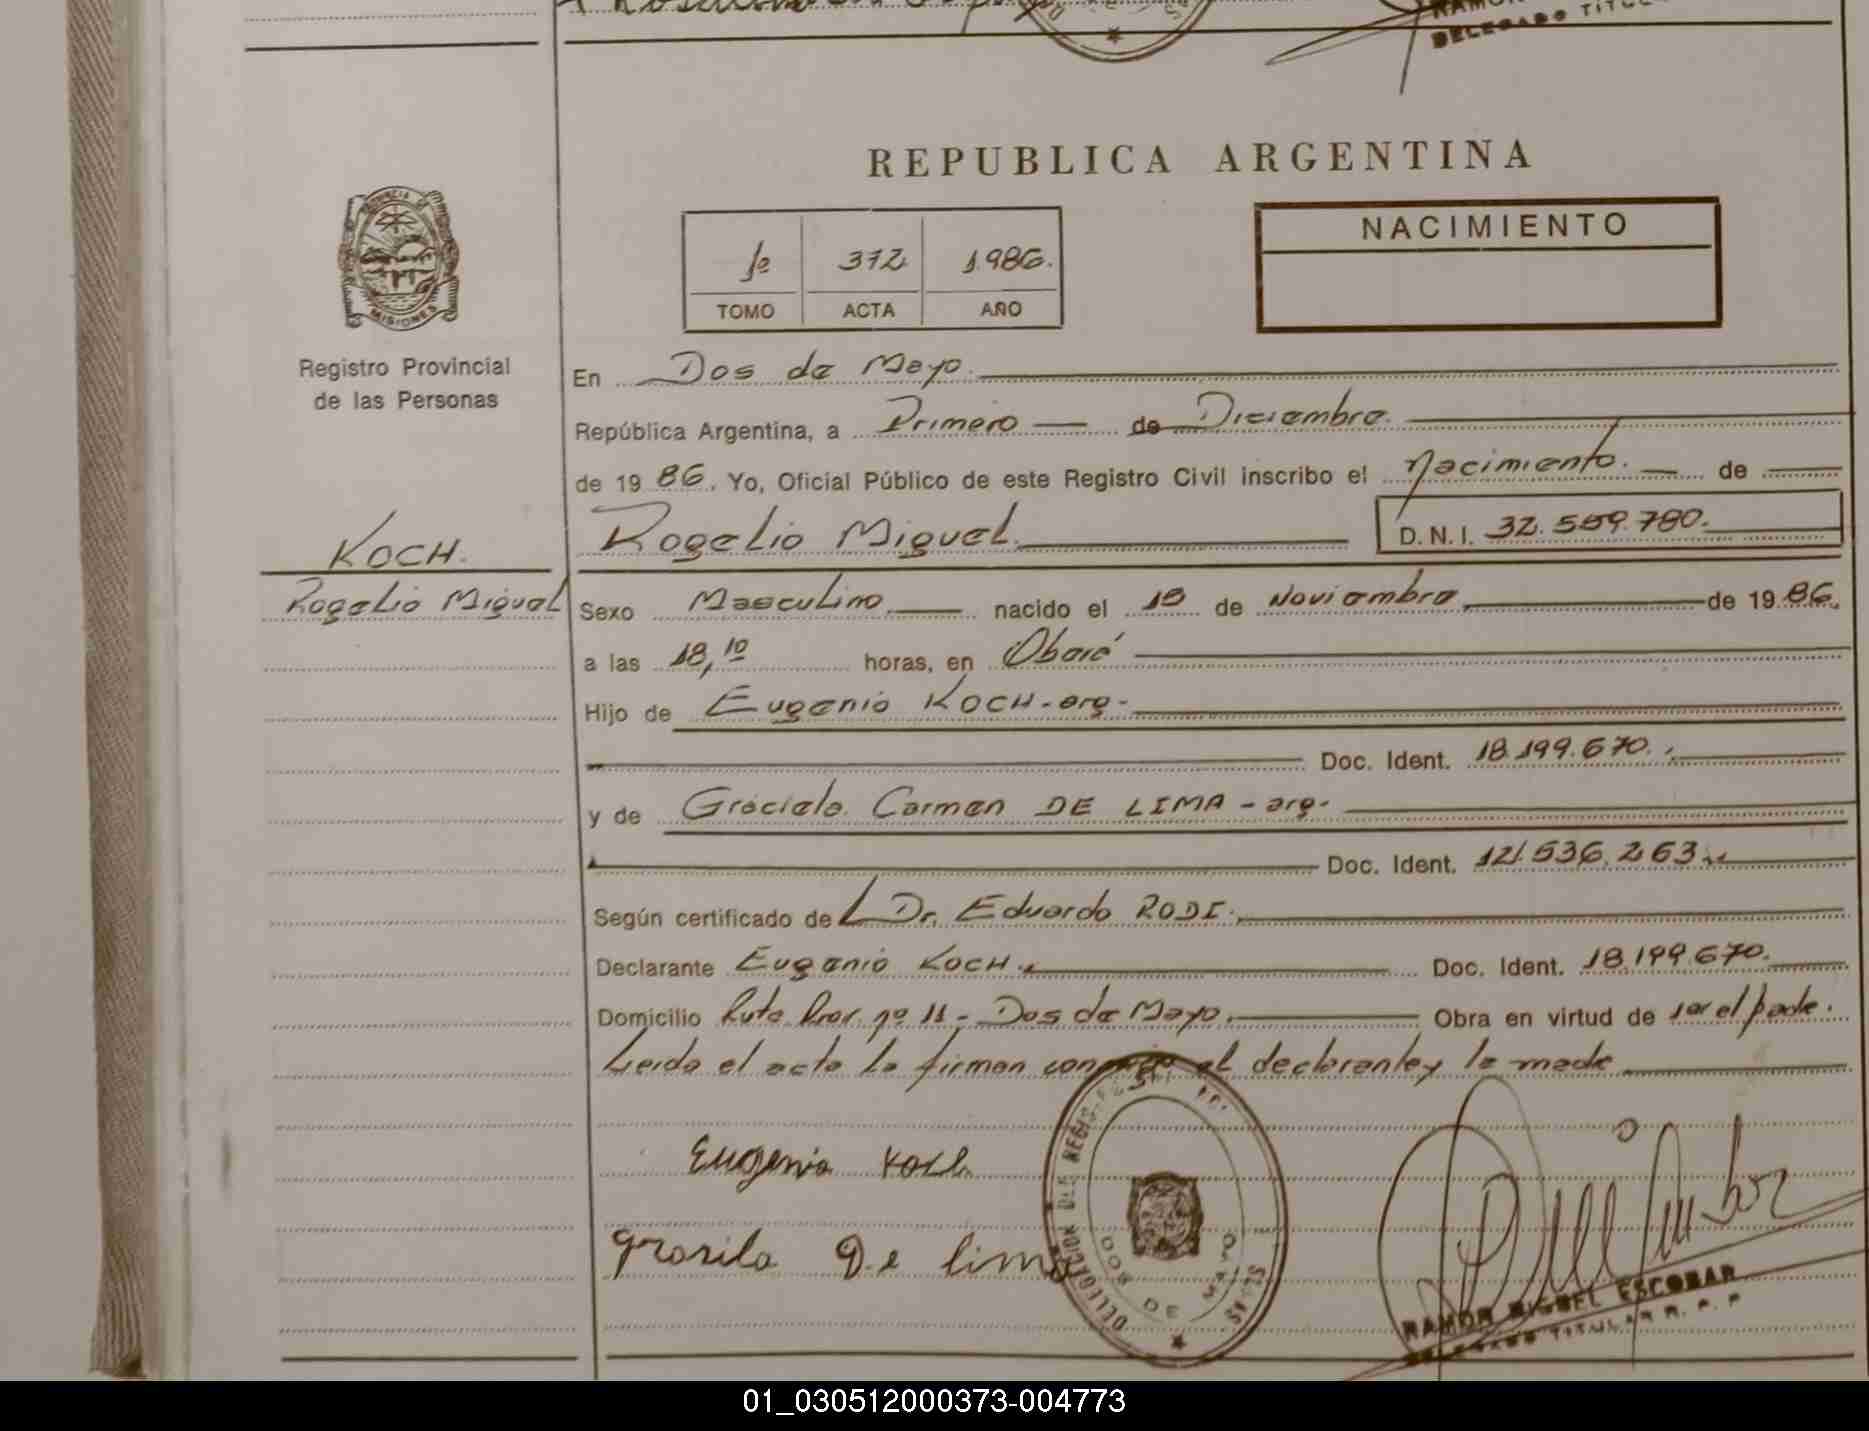 DELEGADO TITULAR
REPUBLICA ARGENTINA
PROVINCIA DE
MISIONES
Registro Provincial
de las Personas
1º 372 1986.
TOMO ACTA AÑO
NACIMIENTO
En Dos de Mayo.
República Argentina, a Primero de Diciembre.
de 19 86. Yo, Oficial Público de este Registro Civil inscribo el Nacimiento. de
Rogelio Miguel D.N.I. 32.559.780.
KOCH.
Rogelio Miguel
Sexo Masculino nacido el 18 de Noviembre de 19 86.
a las 18,10 horas, en Oberá
Hijo de Eugenio KOCH-arg-
Doc. Ident. 18.199.670.
y de Graciela Carmen DE LIMA - arg-
Doc. Ident. 21.536.263
Según certificado de Dr. Eduardo RODI.
Declarante Eugenio KOCH. Doc. Ident. 18.199.670.
Domicilio Ruta Prov. nº 11 - Dos de Mayo. Obra en virtud de ser el padre.
Leida el acta la firman conmigo el declarante y la madre
Eugenio Koch
grasila De lima
DELEGACION DEL REGISTRO
DOS DE MAYO
RAMON MIGUEL ESCOBAR
DELEGADO TITULAR R. P. P.
01_030512000373-004773